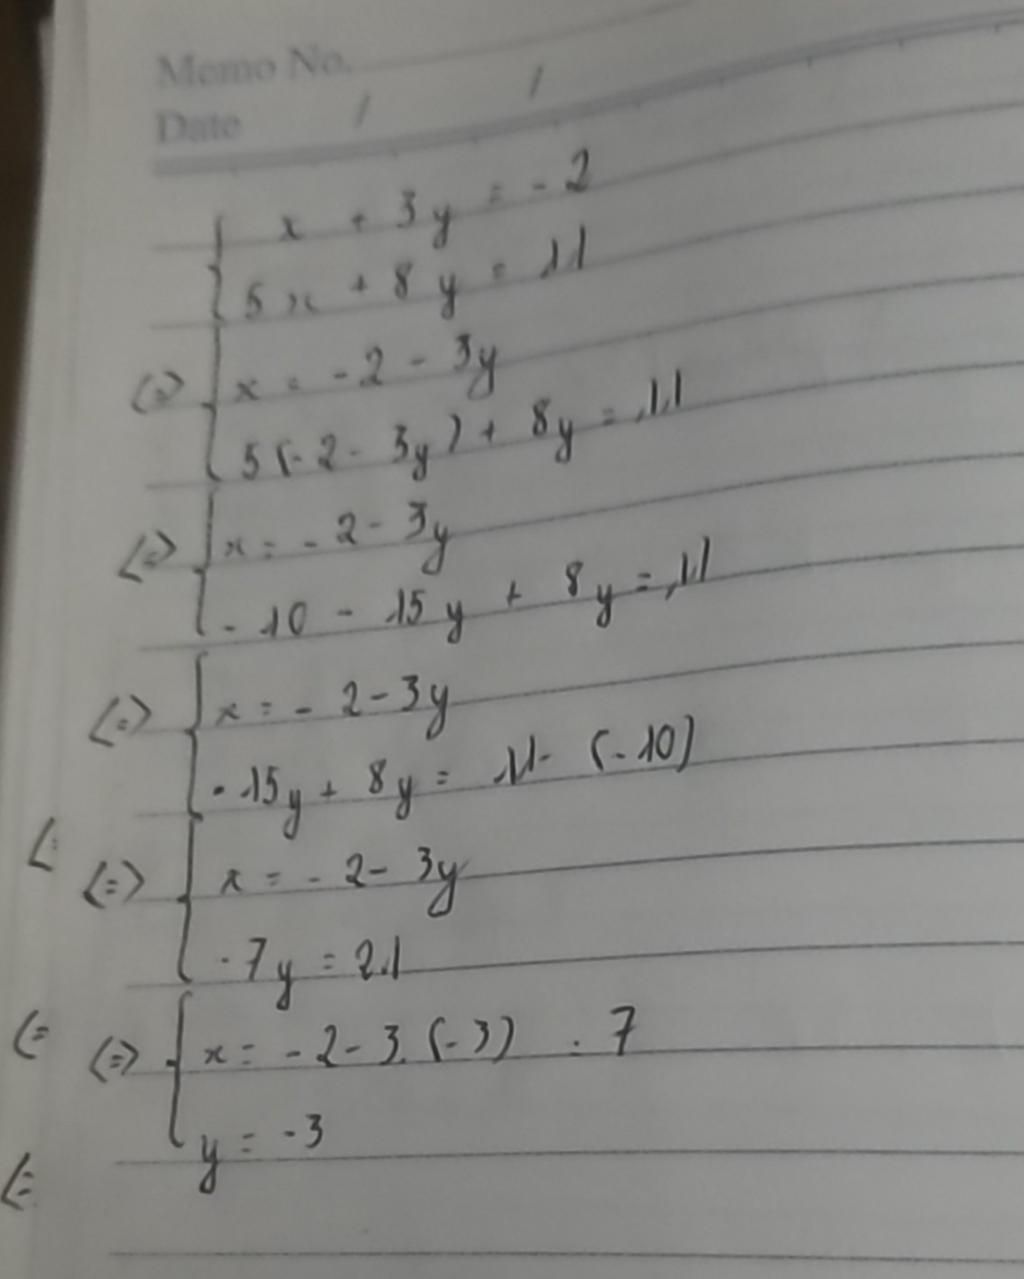 Memo No.
Date / /
x + 3y = -2
5x + 8y = 11
<=> x = -2 - 3y
5(-2 - 3y) + 8y = 11
<=> x = -2 - 3y
-10 - 15y + 8y = 11
<=> x = -2 - 3y
-15y + 8y = 11 - (-10)
<=> x = -2 - 3y
-7y = 21
<=> x = -2 - 3.(-3) = 7
y = -3